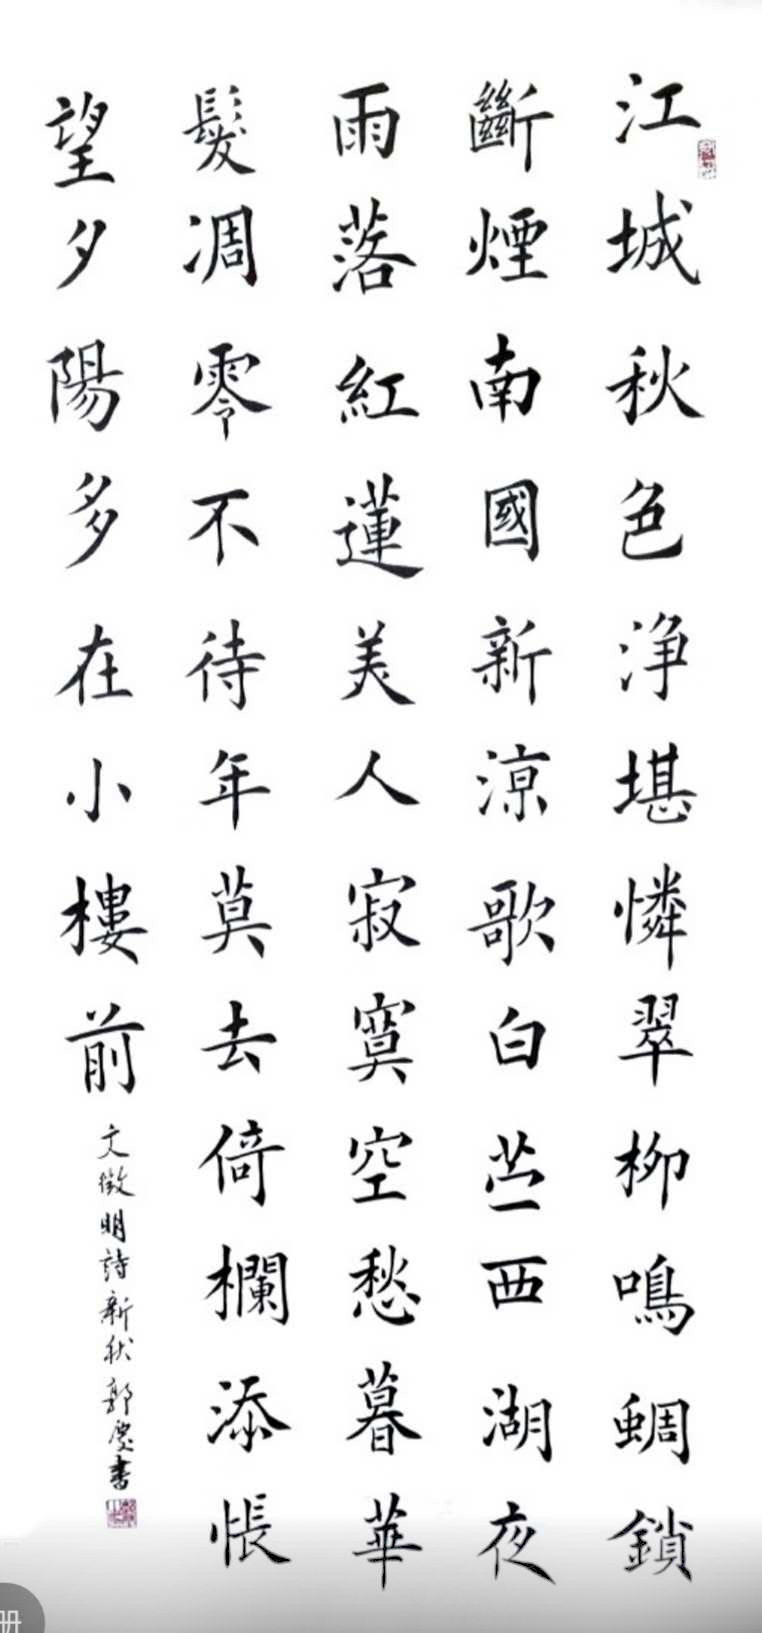 江城秋色淨堪憐翠柳鳴蜩鎖
斷煙南國新涼歌白苎西湖夜
雨落紅蓮美人寂寞空愁暮華
髮凋零不待年莫去倚欄添悵
望夕陽多在小樓前
文徵明詩新秋郭慶書
册